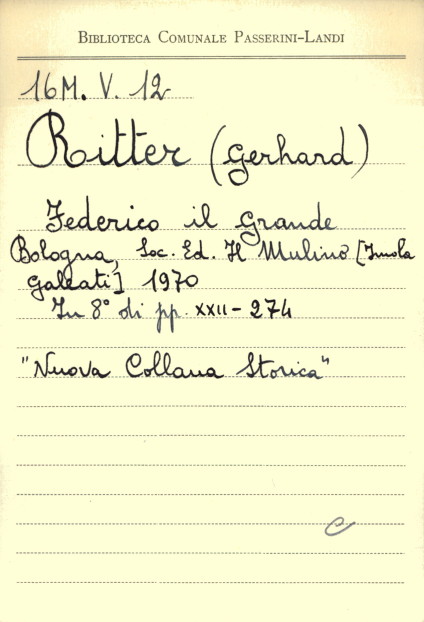 BIBLIOTECA COMUNALE PASSERINI-LANDI
16M. V. 12
Ritter (Gerhard)
Federico il Grande
Bologna, Soc. Ed. Il Mulino [Imola
Galeati] 1970
In 8° di pp. XXII-274
"Nuova Collana Storica"
C